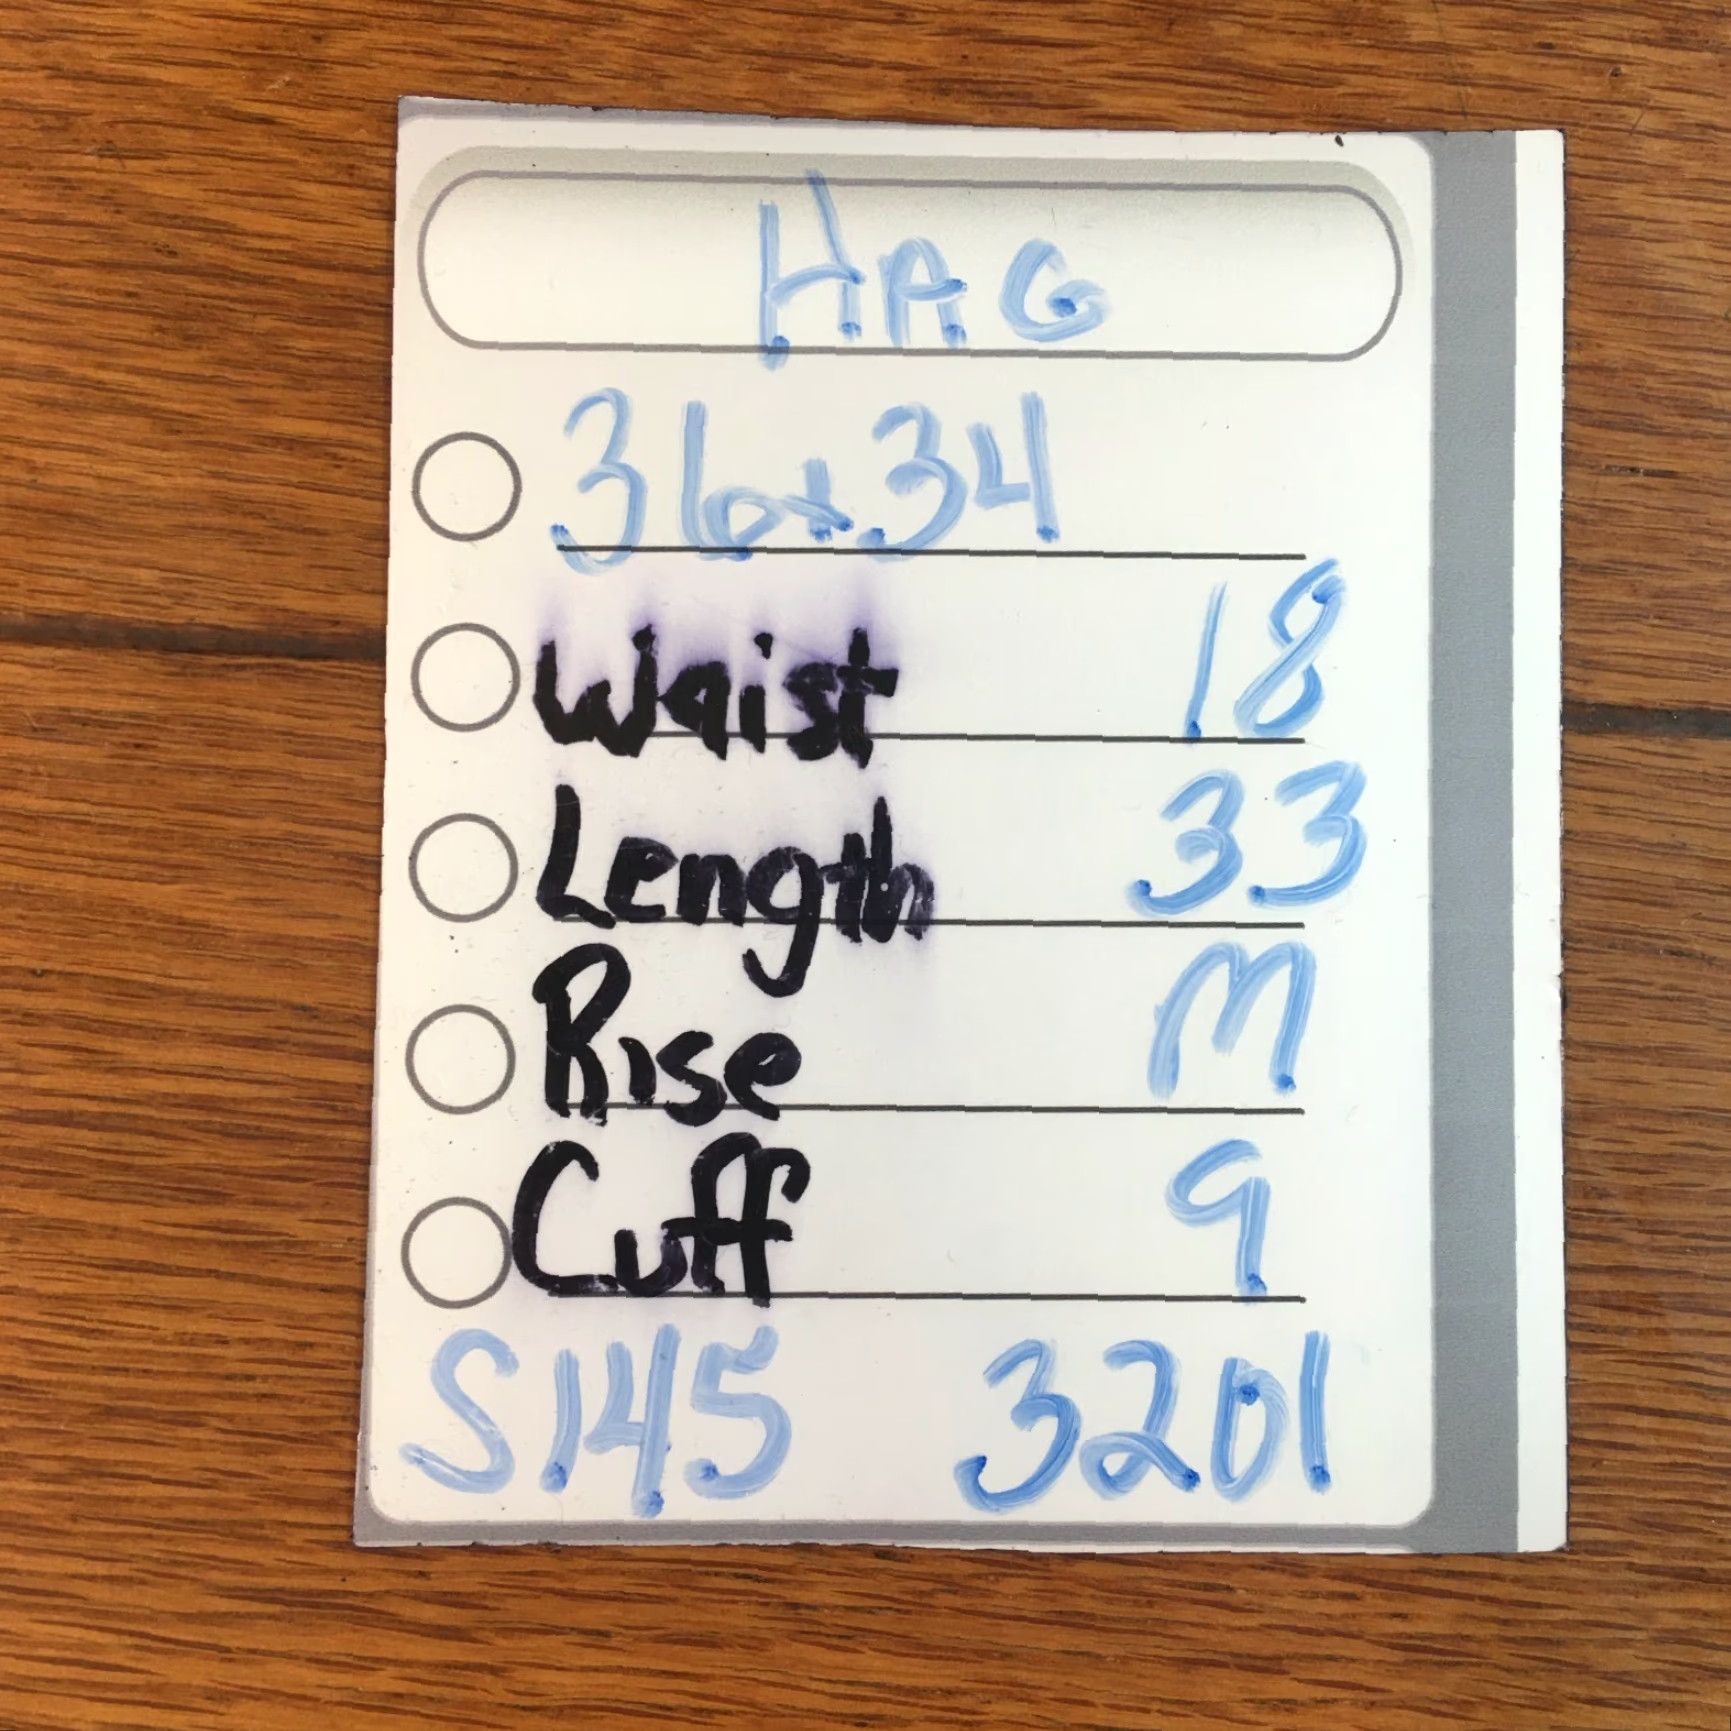 HAG
36x34
Waist 18
Length 33
Rise M
Cuff 9
S145 3201